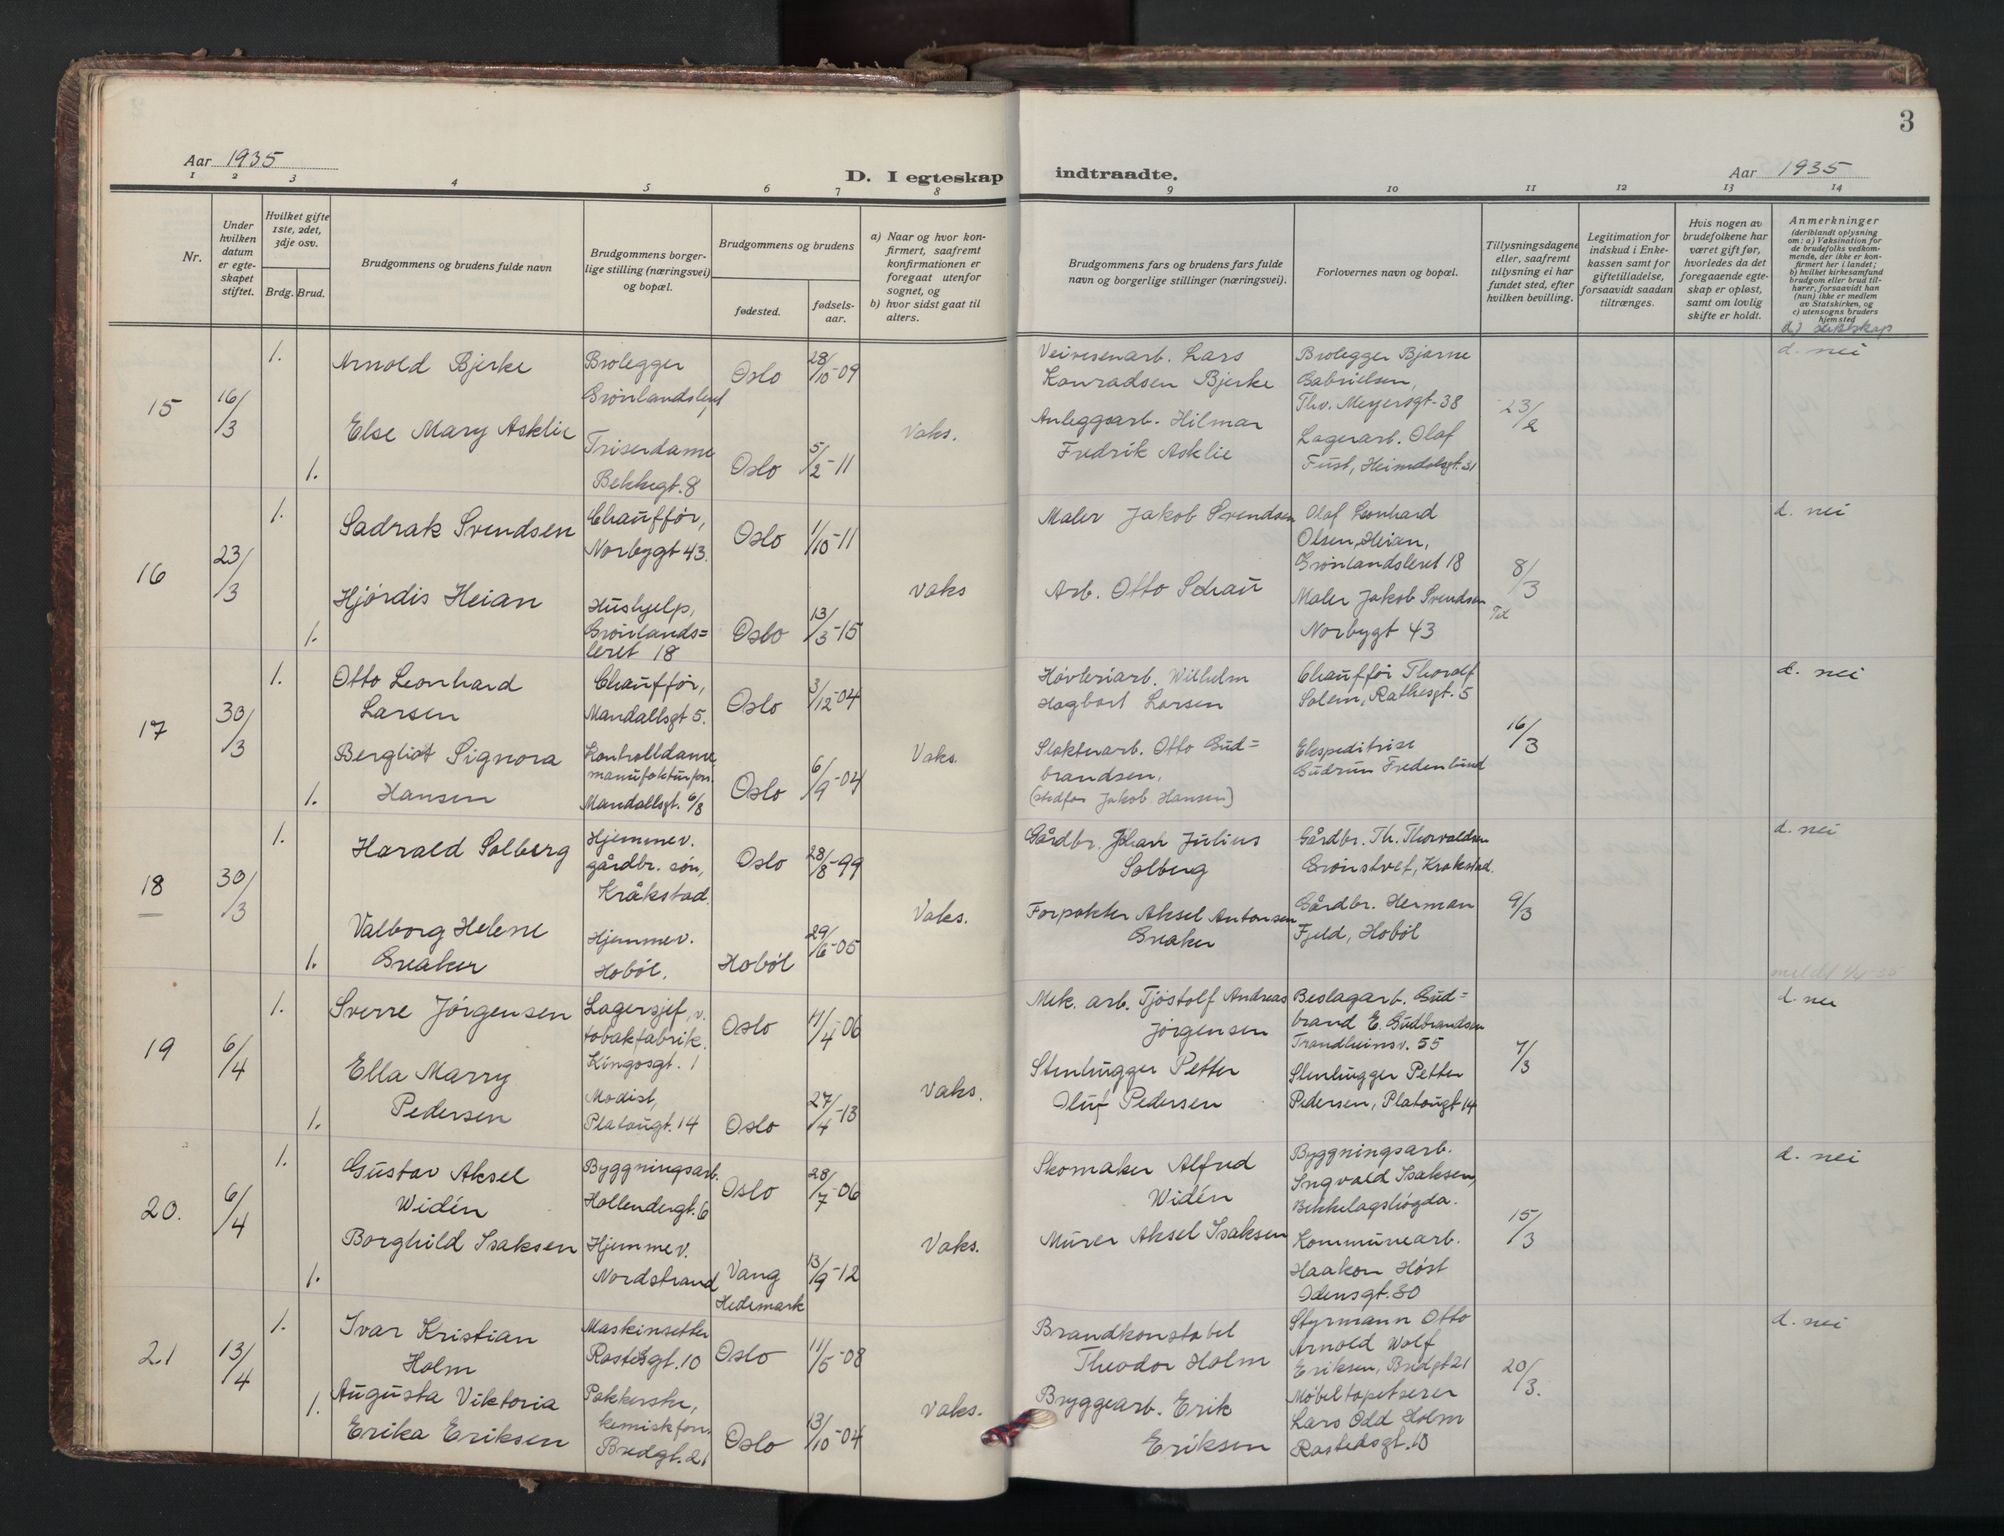 3
Aar 1935
D. I egteskap
indtraadte.
Aar 1935
1 2 3 4 5 6 7 8 9 10 11 12 13 14
Nr.
Under hvilken datum er egteskapet stiftet.
Hvilket gifte 1ste, 2det, 3dje osv.
Brdg. Brud.
Brudgommens og brudens fulde navn
Brudgommens borgerlige stilling (næringsvei) og bopæl.
Brudgommens og brudens
fødested.
fødselsaar.
a) Naar og hvor konfirmert, saafremt konfirmationen er foregaat utenfor sognet, og
b) hvor sidst gaat til alters.
Brudgommens fars og brudens fars fulde navn og borgerlige stillinger (næringsvei).
Forlovernes navn og bopæl.
Tillysningsdagene eller, saafremt tillysning ei har fundet sted, efter hvilken bevilling.
Legitimation for indskud i Enkekassen samt for giftetilladelse, forsaavidt saadan tiltrænges.
Hvis nogen av brudefolkene har været gift før, hvorledes da det foregaaende egteskap er opløst, samt om lovlig skifte er holdt.
Anmerkninger
(deriblandt oplysning om: a) Vaksination for de brudefolks vedkommende, der ikke er konfirmert her i landet;
b) hvilket kirkesamfund brudgom eller brud tilhører, forsaavidt han (hun) ikke er medlem av Statskirken, og
c) utensogns bruders hjemsted
d) slektskap
15
16/3
1.
Arnold Bjerke
Brolegger
Grønlandsleret
Oslo
28/10-09
Veivesenarb. Lars
Konradsen Bjerke
Brolegger Bjarne
Gabrielsen,
Thv. Meyersgt. 38
23/2
d. nei
1.
Else Mary Asklie
Friserdame
Bekkegt. 8
Oslo
5/2-11
Vaks.
Anleggsarb. Hilmar
Fredrik Asklie
Lagerarb. Olaf
Fust, Heimdalsgt. 31
16
23/3
1.
Sadrak Svendsen
Chauffør,
Norbygt 43.
Oslo
1/10-11
Maler Jakob Svendsen
Olaf Leonhard
Olsen, Heian,
Grønlandsleret 18
8/3
d. nei
1.
Hjørdis Heian
Hushjelp,
Grønlands=
leret 18
Oslo
13/3-15
Vaks
Arb. Otto Schau
Maler Jakob Svendsen
Norbygt 43
17
30/3
1.
Otto Leonhard
Larsen
Chauffør,
Mandallsgt 5.
Oslo
3/12-04
Høvleriarb. Wilhelm
Hagbart Larsen
Chauffør Thoralf
Solem, Rathesgt. 5
16/3
d. nei
1.
Bergliot Signora
Hansen
Kontrolldame
manufakturforr.
Mandallsgt. 6/8
Oslo
6/9-04
Vaks.
Slakteriarb. Otto Gud=
brandsen,
(stedfar Jakob Hansen)
Ekspeditrise
Gudrun Fredenlund
18
30/3
1.
Harald Solberg
Hjemmev.
gårdbr. søn,
Kråkstad.
Oslo
28/8-99
Gårdbr. Johan Julius
Solberg
Gårdbr. Th. Thorvaldsen
Grønstvet, Krakstad.
9/3
d. nei
1.
Valborg Helene
Greaker
Hjemmev.
Hobøl.
Hobøl
29/6-05
Vaks.
Forpakter Aksel Antonsen
Greaker
Gårdbr. Herman
Fjeld, Hobøl
19
6/4
1.
Sverre Jørgensen
Lagersjef, v.
tobakfabrik.
Kingosgt. 1
Oslo
11/4-06
Mek. arb. Tjøstolf Andreas
Jørgensen
Beslagarb. Gud=
brand E. Gudbrandsen
Trondheimsv. 55
7/3
d. nei
1.
Ella Marry
Pedersen
Modist,
Platougt. 14
Oslo
27/4-13
Vaks.
Stenhugger Petter
Oluf Pedersen
Stenhugger Petter
Pedersen, Platougt 14
20.
6/4
1.
Gustav Aksel
Widén
Byggningsarb.
Hollendergt. 6
Oslo
28/7-06
Skomaker Alfred
Widén
Byggningsarb.
Ingvald Isaksen,
Bekkelagshøgda.
15/3
d. nei
1.
Borghild Isaksen
Hjemmev.
Nordstrand
Vang
Hedemark
13/9-12
Vaks.
Murer Aksel Isaksen
Kommunearb.
Haakon Høst
Odensgt. 30
21
13/4
1.
Ivar Kristian
Holm
Maskinsetter
Rastedsgt. 10
Oslo
11/5-08
Brandkonstabel
Theodor Holm
Styrmann Otto
Arnold Wolf
Eriksen, Bredgt 21
20/3.
d. nei
1.
Augusta Viktoria
Erika Eriksen
Pakkerske,
kemisk forr.
Bredgt. 21
Oslo
13/10-04
Vaks.
Bryggearb. Erik
Eriksen
Møbeltapetserer
Lars Odd Holm
Rastedsgt. 10